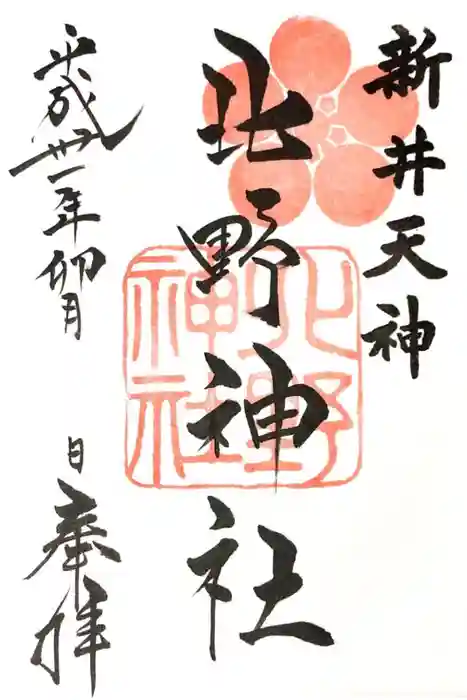 新井天神
北野神社
平成卅一年卯月
日奉拝
北野神社